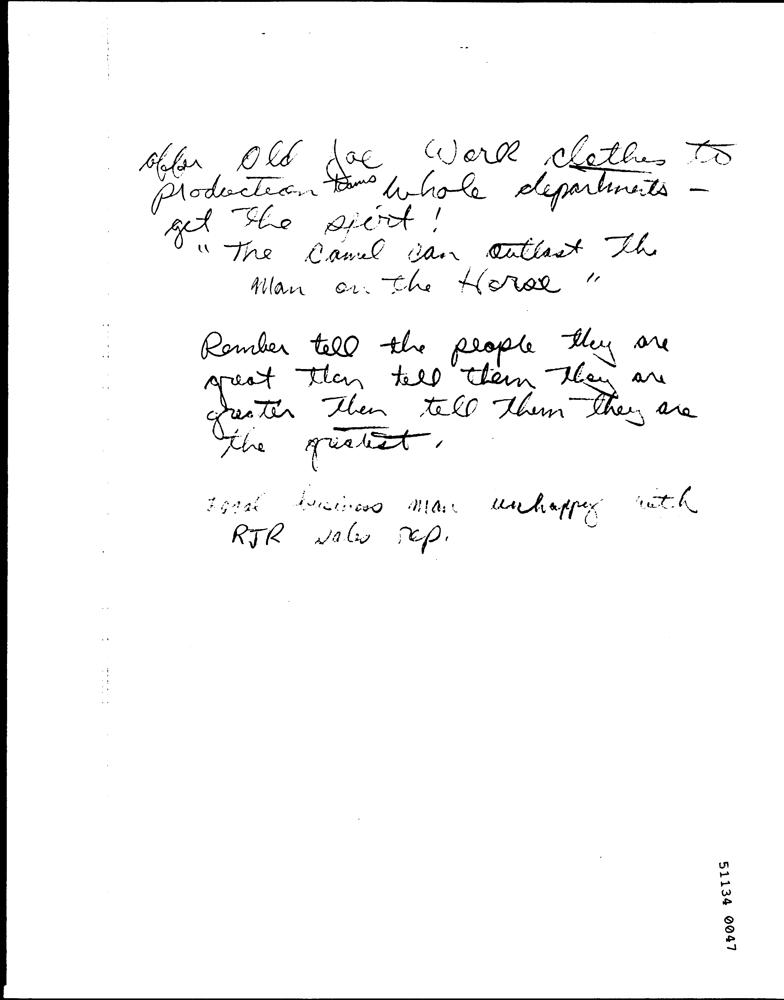 offer Old Joe Work clothes to
production teams whole departments -
get the spirit!
" The Camel can outlast the
Man on the Horse "
Rember tell the people they are
great then tell them they are
greater then tell them they are
the greatest.
business man unhappy with
RJR sales rep.
51134 0047